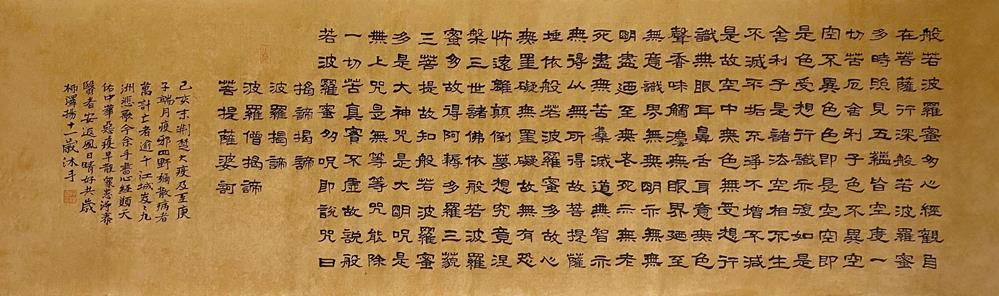 般若波羅蜜多心經觀自
在菩薩行深般若波羅蜜
多時照見五蘊皆空度一
切苦厄舍利子色不異空
空不異色色即是空空即
是色受想行識亦復如是
舍利子是諸法空相不生
不滅不垢不淨不增不減
是故空中無色無受想行
識無眼耳鼻舌身意無色
聲香味觸灋無眼界廼至
無意識界無無明亦無無
明盡廼至無老死亦無老
死盡無苦集滅道無智亦
無得以無所得故菩提薩
埵依般若波羅蜜多故心
無罣礙無罣礙故無有恐
怖遠離顛倒夢想究竟涅
槃三世諸佛依般若波羅
蜜多故得阿耨多羅三藐
三菩提故知般若波羅蜜
多是大神咒是大明咒是
無上咒是無等等咒能除
一切苦真實不虛故說般
若波羅蜜多咒即說咒曰
揭諦揭諦
波羅揭諦
波羅僧揭諦
菩提薩婆訶
己亥末荊楚大疫及至庚
子端月疫邪四野散病者
萬計亡者逾千江城岌岌九
洲悲歌今余手書心經願天
佑中華惡疫早散泰
醫者安返風日晴好共歲
柳澤揚十一歲沐手